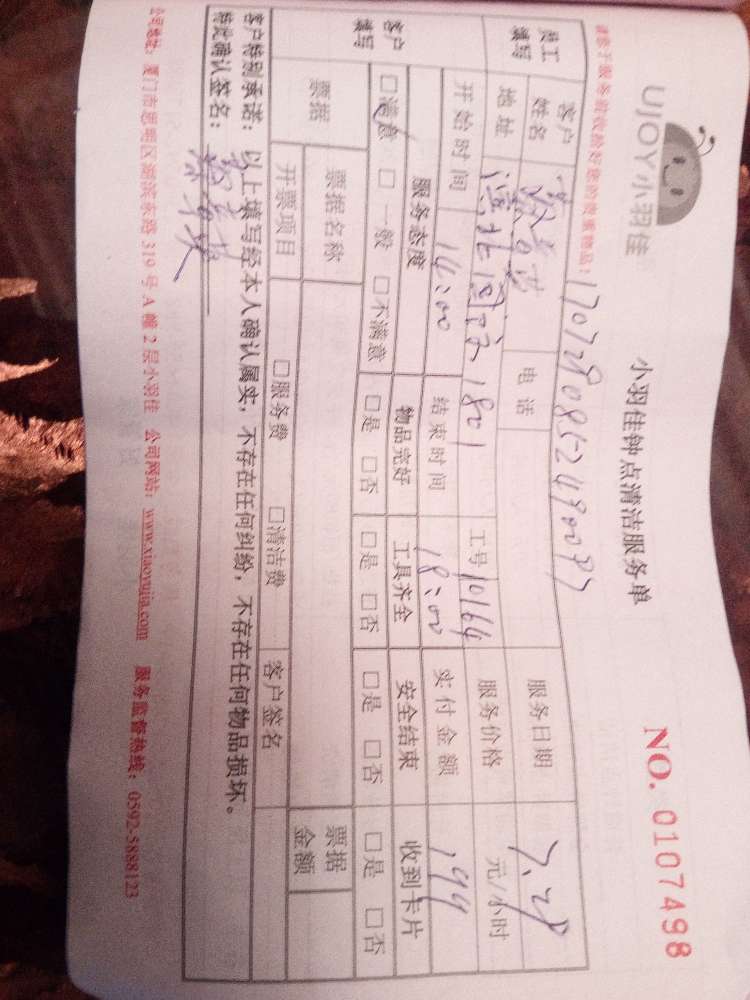 UJOY小羽佳
小羽佳钟点清洁服务单
NO. 0107498
请您于服务前收捡好您的贵重物品！
员工填写
客户姓名
电话
服务日期
7.28
地址
1801
工号
10164
服务价格
元/小时
开始时间
14:00
结束时间
18:00
实付金额
144
客户填写
服务态度
物品完好
工具齐全
安全结束
收到卡片
□满意 □一般 □不满意
□是 □否
□是 □否
□是 □否
□是 □否
票据
票据名称
票据金额
开票项目
□服务费 □清洁费
客户签名
客户特别承诺：以上填写经本人确认属实，不存在任何纠纷，不存在任何物品损坏。
特此确认签名：
公司地址：厦门市思明区湖滨东路319号A幢2层小羽佳 公司网站：www.xiaoyujia.com 服务监督热线：0592-5888123